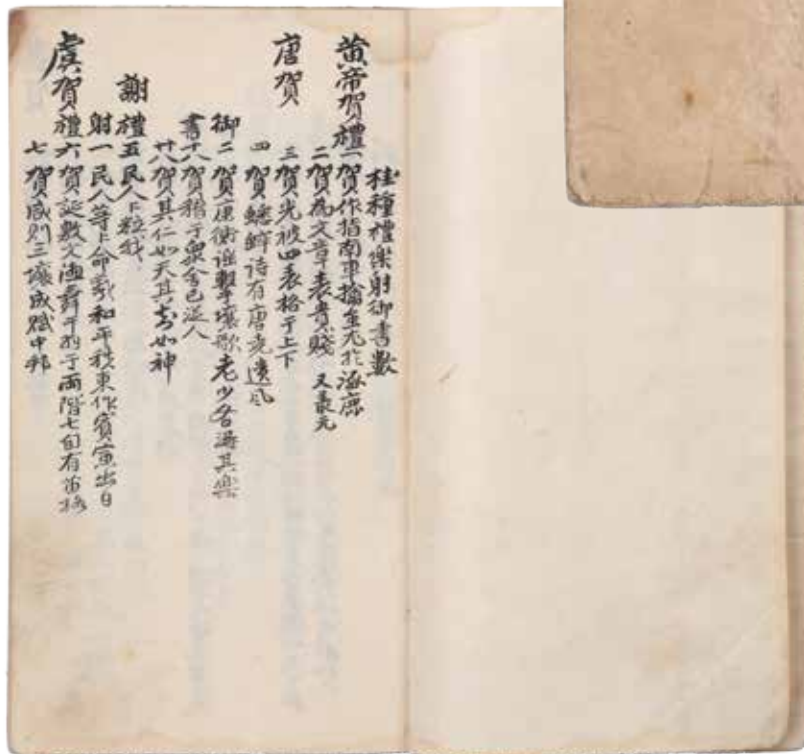 桂種禮樂射御書數
黃帝賀禮一賀作指南車擒蚩尤於涿鹿
二賀為文章表貴賤 又叢元
唐賀 三賀光被四表格于上下
四賀蟋蟀詩有唐堯遺風
御二賀康衢謠擊壤歌老少各得其樂
書十八賀稽于衆舍己從人
廿八賀其仁如天其知如神
謝禮五民人卜粒我
射一民人等卜命羲和平秩東作賓寅出日
虞賀禮六賀誕敷文德舞干羽于兩階七旬有苗格
七賀咸則三壤成賦中邦